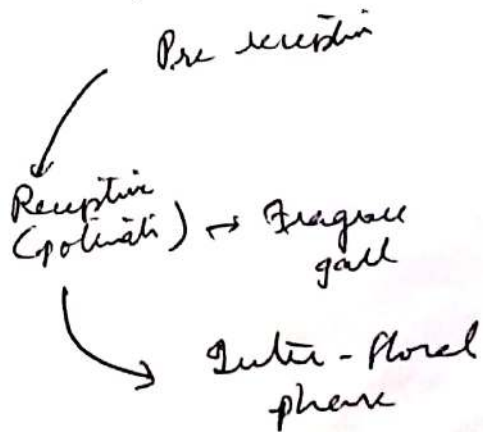 Pre receptive
Receptive
(pollinati) → Fragrance
gall
Inter-floral
phase